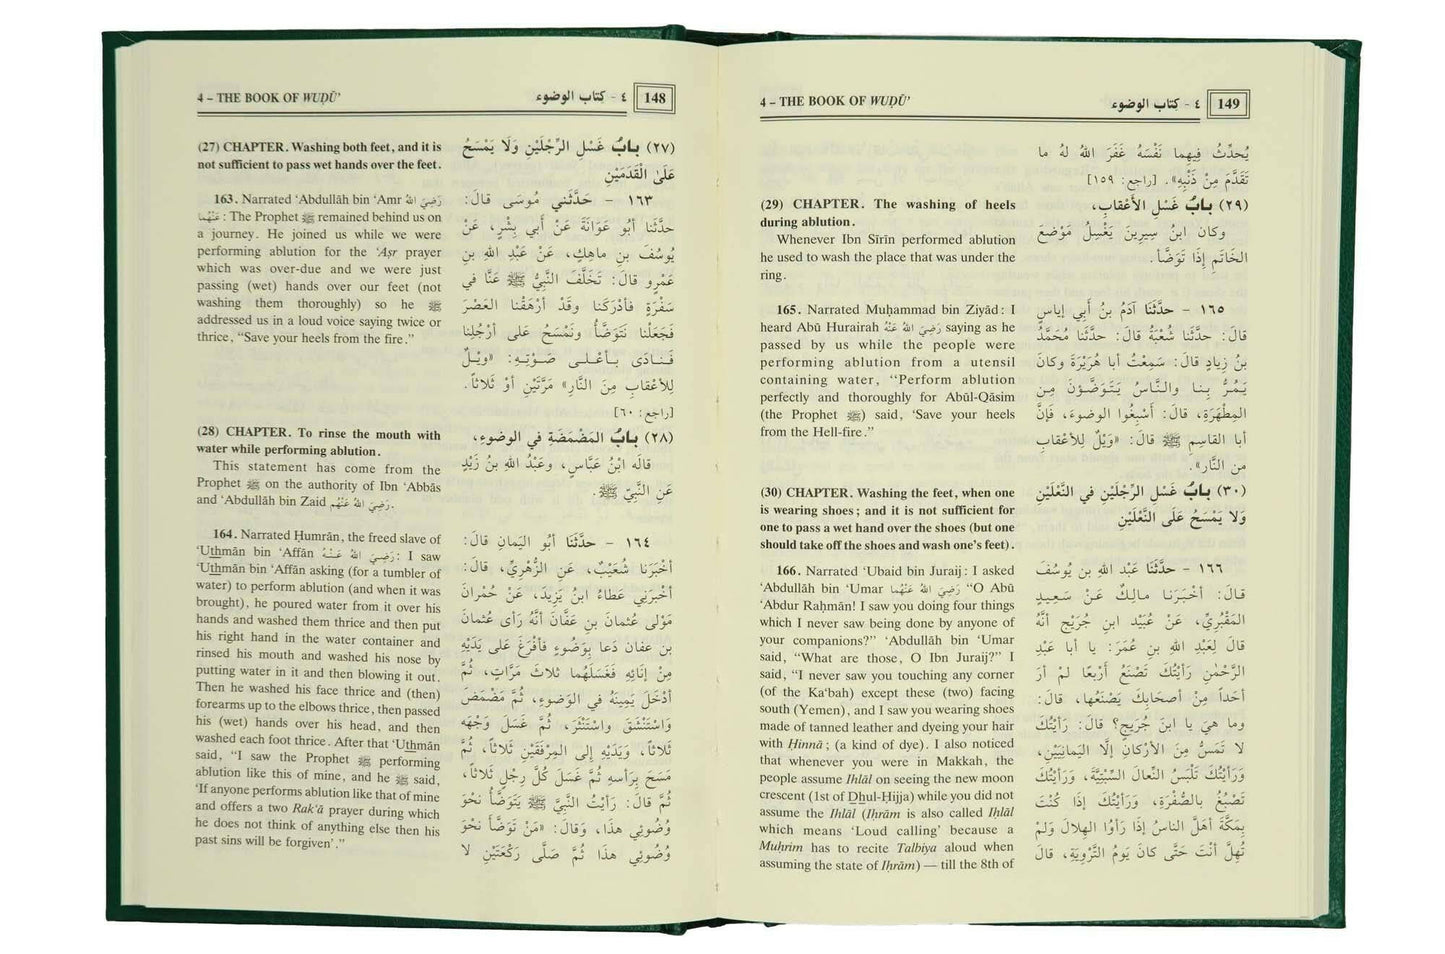 4 – THE BOOK OF WUḌŪ’
٤ - كتاب الوضوء
148
(27) CHAPTER. Washing both feet, and it is
not sufficient to pass wet hands over the feet.
163. Narrated ‘Abdullāh bin ‘Amr رَضِيَ اللهُ
عَنْهُمَا: The Prophet ﷺ remained behind us on
a journey. He joined us while we were
performing ablution for the ‘Aṣr prayer
which was over-due and we were just
passing (wet) hands over our feet (not
washing them thoroughly) so he ﷺ
addressed us in a loud voice saying twice or
thrice, “Save your heels from the fire.”
(28) CHAPTER. To rinse the mouth with
water while performing ablution.
This statement has come from the
Prophet ﷺ on the authority of Ibn ‘Abbās
and ‘Abdullāh bin Zaid رَضِيَ اللهُ عَنْهُم.
164. Narrated Ḥumrān, the freed slave of
‘Uthmān bin ‘Affān رَضِيَ اللهُ عَنْهُ: I saw
‘Uthmān bin ‘Affān asking (for a tumbler of
water) to perform ablution (and when it was
brought), he poured water from it over his
hands and washed them thrice and then put
his right hand in the water container and
rinsed his mouth and washed his nose by
putting water in it and then blowing it out.
Then he washed his face thrice and (then)
forearms up to the elbows thrice, then passed
his (wet) hands over his head, and then
washed each foot thrice. After that ‘Uthmān
said, “I saw the Prophet ﷺ performing
ablution like this of mine, and he ﷺ said,
‘If anyone performs ablution like that of mine
and offers a two Rak‘ā prayer during which
he does not think of anything else then his
past sins will be forgiven’.”
(٢٧) بابُ غَسْلِ الرِّجْلَيْنِ وَلَا يَمْسَحُ
عَلَى الْقَدَمَيْنِ
١٦٣ - حَدَّثَني مُوسَى قالَ:
حدَّثَنا أبُو عَوَانَةَ عَنْ أبي بِشْرٍ، عَنْ
يُوسُفَ بنِ ماهِكٍ، عَنْ عَبْدِ اللهِ بنِ
عَمْرٍو قالَ: تَخَلَّفَ النَّبيُّ ﷺ عَنَّا في
سَفْرَةٍ فأدْرَكَنا وقَدْ أرْهَقْنا العَصْرَ
فَجَعَلْنا نَتَوَضَّأُ ونَمْسَحُ على أرْجُلِنا
فَنادَى بأعْلى صَوْتِهِ: «ويْلٌ
لِلأعْقابِ مِنَ النَّارِ» مَرَّتَيْنِ أوْ ثَلاثاً.
[راجع: ٦٠]
(٢٨) بابُ المَضْمَضَةِ في الوُضوءِ،
قالَه ابْنُ عَبَّاسٍ، وعَبْدُ اللهِ بنُ زَيْدٍ
عَنِ النَّبيِّ ﷺ.
١٦٤ - حدَّثَنَا أبُو اليَمانِ قالَ:
أخْبَرَنا شُعَيْبٌ، عَنِ الزُّهْرِيِّ، قالَ:
أخْبَرَنِي عَطاءُ ابنُ يَزِيدَ، عَنْ حُمْرانَ
مَوْلى عُثمانَ بنِ عَفَّانَ أنَّهُ رَأى عُثمانَ
بن عفان دَعا بِوَضُوءٍ فأفْرَغَ على يَدَيْهِ
مِنْ إنَائِهِ فَغَسَلَهُما ثلاثَ مَرَّاتٍ، ثُمَّ
أدْخَلَ يَمِينَهُ في الوَضوءِ، ثُمَّ مَضْمَضَ
وَاسْتَنْشَقَ واسْتَنْثَرَ، ثُمَّ غَسَلَ وَجْهَه
ثَلاثاً، ويَدَيْهِ إلى المِرْفَقَيْنِ ثَلاثاً، ثُمَّ
مَسَحَ بِرَأسِهِ ثُمَّ غَسَلَ كُلَّ رِجْلٍ ثَلاثاً،
ثُمَّ قالَ: رَأيْتُ النَّبيَّ ﷺ يَتَوَضَّأُ نَحْوَ
وُضُوئِي هذَا، وَقَالَ: «مَنْ تَوَضَّأَ نَحْوَ
وُضُوئِي هذَا ثُمَّ صَلَّى رَكْعَتَيْنِ لا
4 – THE BOOK OF WUḌŪ’
٤ - كتاب الوضوء
149
(29) CHAPTER. The washing of heels
during ablution.
Whenever Ibn Sīrīn performed ablution
he used to wash the place that was under the
ring.
165. Narrated Muḥammad bin Ziyād: I
heard Abū Hurairah رَضِيَ اللهُ عَنْهُ saying as he
passed by us while the people were
performing ablution from a utensil
containing water, “Perform ablution
perfectly and thoroughly for Abūl-Qāsim
(the Prophet ﷺ) said, ‘Save your heels
from the Hell-fire.”
(30) CHAPTER. Washing the feet, when one
is wearing shoes; and it is not sufficient for
one to pass a wet hand over the shoes (but one
should take off the shoes and wash one’s feet).
166. Narrated ‘Ubaid bin Juraij: I asked
‘Abdullāh bin ‘Umar رَضِيَ اللهُ عَنْهُما “O Abū
‘Abdur Raḥmān! I saw you doing four things
which I never saw being done by anyone of
your companions?” ‘Abdullāh bin ‘Umar
said, “What are those, O Ibn Juraij?” I
said, “I never saw you touching any corner
(of the Ka‘bah) except these (two) facing
south (Yemen), and I saw you wearing shoes
made of tanned leather and dyeing your hair
with Ḥinnā; (a kind of dye). I also noticed
that whenever you were in Makkah, the
people assume Ihlāl on seeing the new moon
crescent (1st of Dhul-Ḥijja) while you did not
assume the Ihlāl (Iḥrām is also called Ihlāl
which means ‘Loud calling’ because a
Muḥrim has to recite Talbiya aloud when
assuming the state of Iḥrām) — till the 8th of
يُحدِّثُ فِيهِما نَفْسَهُ غَفَرَ اللهُ لَهُ ما
تَقَدَّمَ مِنْ ذَنْبِهِ». [راجع: ١٥٩]
(٢٩) بابُ غَسْلِ الأعْقابِ،
وكان ابنُ سِيرِينَ يَغْسِلُ مَوْضعَ
الخَاتَمِ إذَا تَوَضَّأَ.
١٦٥ - حدَّثَنَا آدَمُ بنُ أبي إياسٍ
قالَ: حدَّثَنا شُعْبَةُ قالَ: حدَّثَنا مُحَمَّدُ
بنُ زِيادٍ قالَ: سَمِعْتُ أبا هُرَيْرَةَ وكانَ
يَمُرُّ بِنا والنَّاسُ يَتَوَضَّؤنَ مِنَ
المِطهَرَةِ، قالَ: أسْبِغُوا الوضوءَ، فَإنَّ
أبا القاسِمِ ﷺ قالَ: «وَيْلٌ لِلأعْقابِ
من النَّار».
(٣٠) بابُ غَسْلِ الرِّجْلَيْنِ في النَّعْلَيْنِ
وَلا يَمْسَحُ عَلَى النَّعْلَيْنِ
١٦٦ - حدَّثَنَا عَبْدُ اللهِ بنِ يُوسُفَ
قَالَ: أخْبَرَنا مالِكٌ عَنْ سَعِيدٍ
المَقْبُرِيِّ، عَنْ عُبَيْدِ ابنِ جُرَيْجٍ أنَّهُ
قالَ لِعَبْدِ اللهِ بنِ عُمَرَ: يا أبا عَبْدِ
الرَّحْمٰنِ رَأيْتُكَ تَصْنَعُ أرْبَعًا لمْ أرَ
أحَداً مِنْ أصحَابِكَ يَصْنَعُها، قالَ:
وما هِيَ يا ابنَ جُرَيجٍ؟ قالَ: رَأيْتُكَ
لا تَمَسُّ مِنَ الأرْكانِ إلَّا اليَمانِيَيْنِ،
وَرَأيْتُكَ تَلْبَسُ النِّعالَ السِّبْتِيَّةَ، وَرَأيْتُكَ
تَصْبُغُ بالصُّفْرَةِ، وَرَأيْتُكَ إذَا كُنْتَ
بِمَكَّةَ أهَلَّ النَّاسُ إذَا رَأوُا الهِلالَ وَلمْ
تُهِلَّ أنْتَ حَتَّى كانَ يَومُ التَّرْوِيَةِ، قالَ